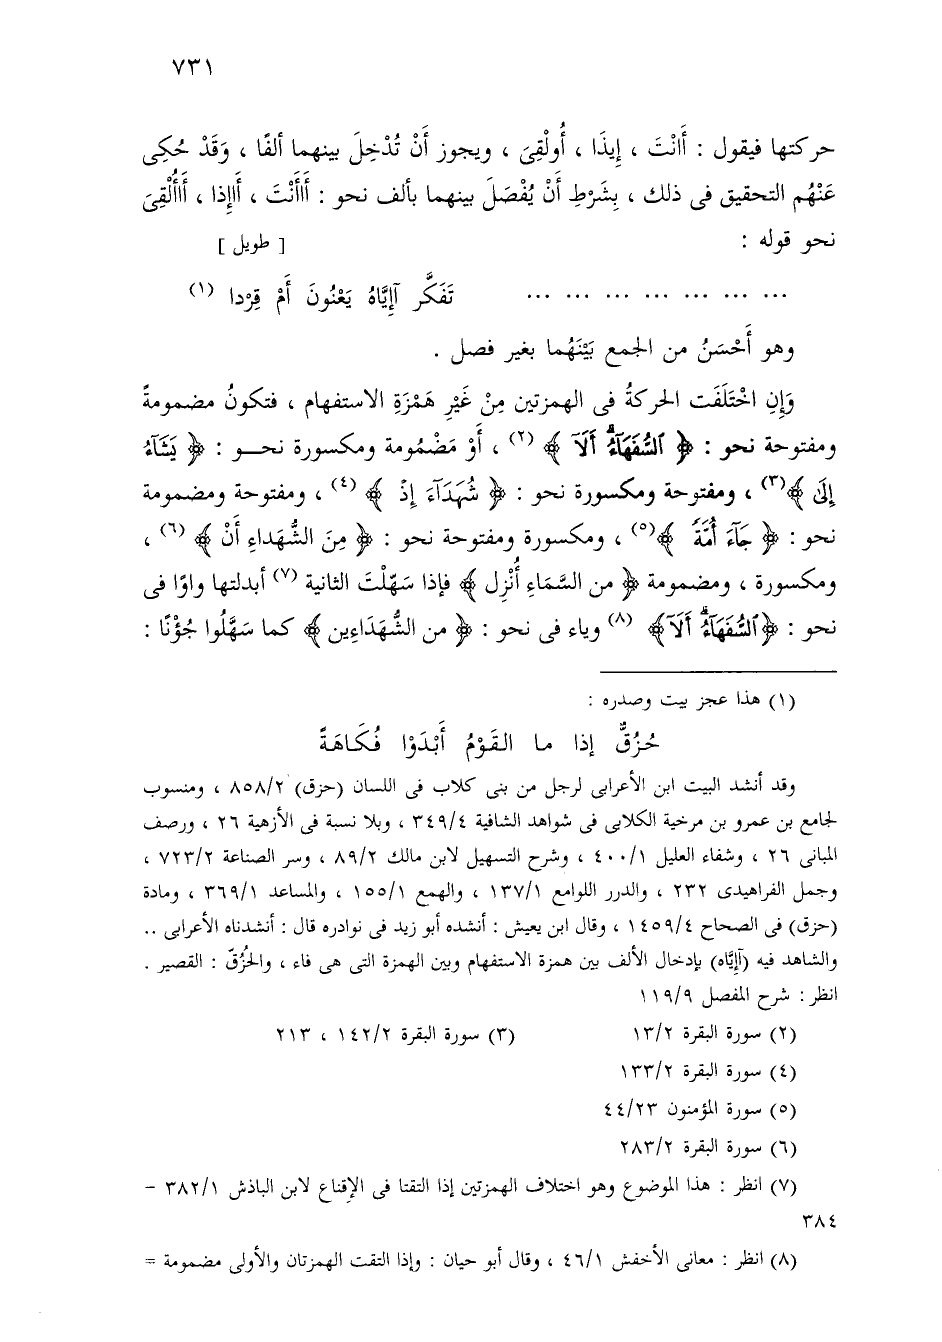 ٧٣١
حركتها فيقول : أانْتَ ، إيذَا ، أُولْقِىَ ، ويجوز أَنْ تُدْخِلَ بينهما ألفًا ، وَقَدْ حُكِى
عَنْهُم التحقيق فى ذلك ، بِشَرْطِ أَنْ يُفْصَلَ بينهما بألف نحو : أَاأَنْتَ ، أَاإِذا ، أَاأُلْقِىَ
نحو قوله : [ طويل ]
... ... ... ... ... ... ... تَفَكَّر آإيَّاهُ يَعْنُونَ أَمْ قِرْدا (١)
وهو أَحْسَنُ من الجمع بَيْنَهُما بغير فصل .
وَإِنِ اخْتَلَفَت الحركةُ فى الهمزتين مِنْ غَيْرِ هَمْزَةِ الاستفهام ، فتكونُ مضمومةً
ومفتوحة نحو : ﴿ ٱلسُّفَهَآءُ أَلَآ ﴾ (٢) ، أَوْ مَضْمُومة ومكسورة نحـــو : ﴿ يَشَآءُ
إِلَىٰ ﴾(٣) ، ومفتوحة ومكسورة نحو : ﴿ شُهَدَآءَ إِذْ ﴾ (٤) ، ومفتوحة ومضمومة
نحو : ﴿ جَآءَ أُمَّةً ﴾(٥) ، ومكسورة ومفتوحة نحو : ﴿ مِنَ الشُّهَداءِ أَنْ ﴾ (٦) ،
ومكسورة ، ومضمومة ﴿ من السَّمَاءِ أُنْزِل ﴾ فإذا سَهّلْتَ الثانية (٧) أبدلتها واوًا فى
نحو : ﴿ ٱلسُّفَهَآءُ أَلَآ﴾ (٨) وياء فى نحو : ﴿ من الشُّهَدَاءِين ﴾ كما سَهَّلُوا جُؤْنًا :
(١) هذا عجز بيت وصدره :
حُزُقٌّ إذا ما القَوْمُ أَبْدَوْا فُكَاهَةً
وقد أنشد البيت ابن الأعرابى لرجل من بنى كلاب فى اللسان (حزق) ٨٥٨/٢ ، ومنسوب
لجامع بن عمرو بن مرخية الكلابى فى شواهد الشافية ٣٤٩/٤ ، وبلا نسبة فى الأزهية ٢٦ ، ورصف
المبانى ٢٦ ، وشفاء العليل ٤٠٠/١ ، وشرح التسهيل لابن مالك ٨٩/٢ ، وسر الصناعة ٧٢٣/٢ ،
وجمل الفراهيدى ٢٣٢ ، والدرر اللوامع ١٣٧/١ ، والهمع ١٥٥/١ ، والمساعد ٣٦٩/١ ، ومادة
(حزق) فى الصحاح ١٤٥٩/٤ ، وقال ابن يعيش : أنشده أبو زيد فى نوادره قال : أنشدناه الأعرابى ..
والشاهد فيه (آإيَّاه) بإدخال الألف بين همزة الاستفهام وبين الهمزة التى هى فاء ، والحُزُقّ : القصير .
انظر : شرح المفصل ١١٩/٩
(٢) سورة البقرة ١٣/٢ (٣) سورة البقرة ١٤٢/٢ ، ٢١٣
(٤) سورة البقرة ١٣٣/٢
(٥) سورة المؤمنون ٤٤/٢٣
(٦) سورة البقرة ٢٨٣/٢
(٧) انظر : هذا الموضوع وهو اختلاف الهمزتين إذا التقتا فى الإقناع لابن الباذش ٣٨٢/١ –
٣٨٤
(٨) انظر : معانى الأخفش ٤٦/١ ، وقال أبو حيان : وإذا التقت الهمزتان والأولى مضمومة =